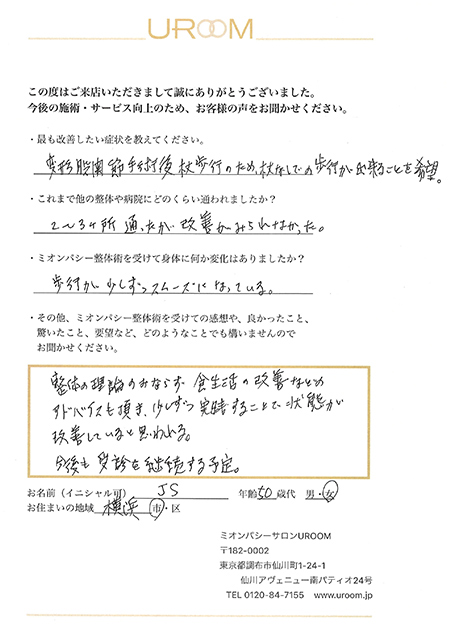 UROOM
この度はご来店いただきまして誠にありがとうございました。
今後の施術・サービス向上のため、お客様の声をお聞かせください。
・最も改善したい症状を教えてください。
変形股関節手術後杖歩行のため、杖なしでの歩行が出来ることを希望。
・これまで他の整体や病院にどのくらい通われましたか？
2〜3ヶ所通ったが改善がみられなかった。
・ミオンパシー整体術を受けて身体に何か変化はありましたか？
歩行が少しずつスムーズになっている。
・その他、ミオンパシー整体術を受けての感想や、良かったこと、
驚いたこと、要望など、どのようなことでも構いませんので
お聞かせください。
整体の理論のみならず食生活の改善などの
アドバイスも頂き、少しずつ実践することで状態が
改善していると思われる。
今後も受診を継続する予定。
お名前（イニシャル可） JS 年齢 50 歳代 男・女
お住まいの地域 横浜 市・区
ミオンパシーサロンUROOM
〒182-0002
東京都調布市仙川町1-24-1
仙川アヴェニュー南パティオ24号
TEL 0120-84-7155 www.uroom.jp